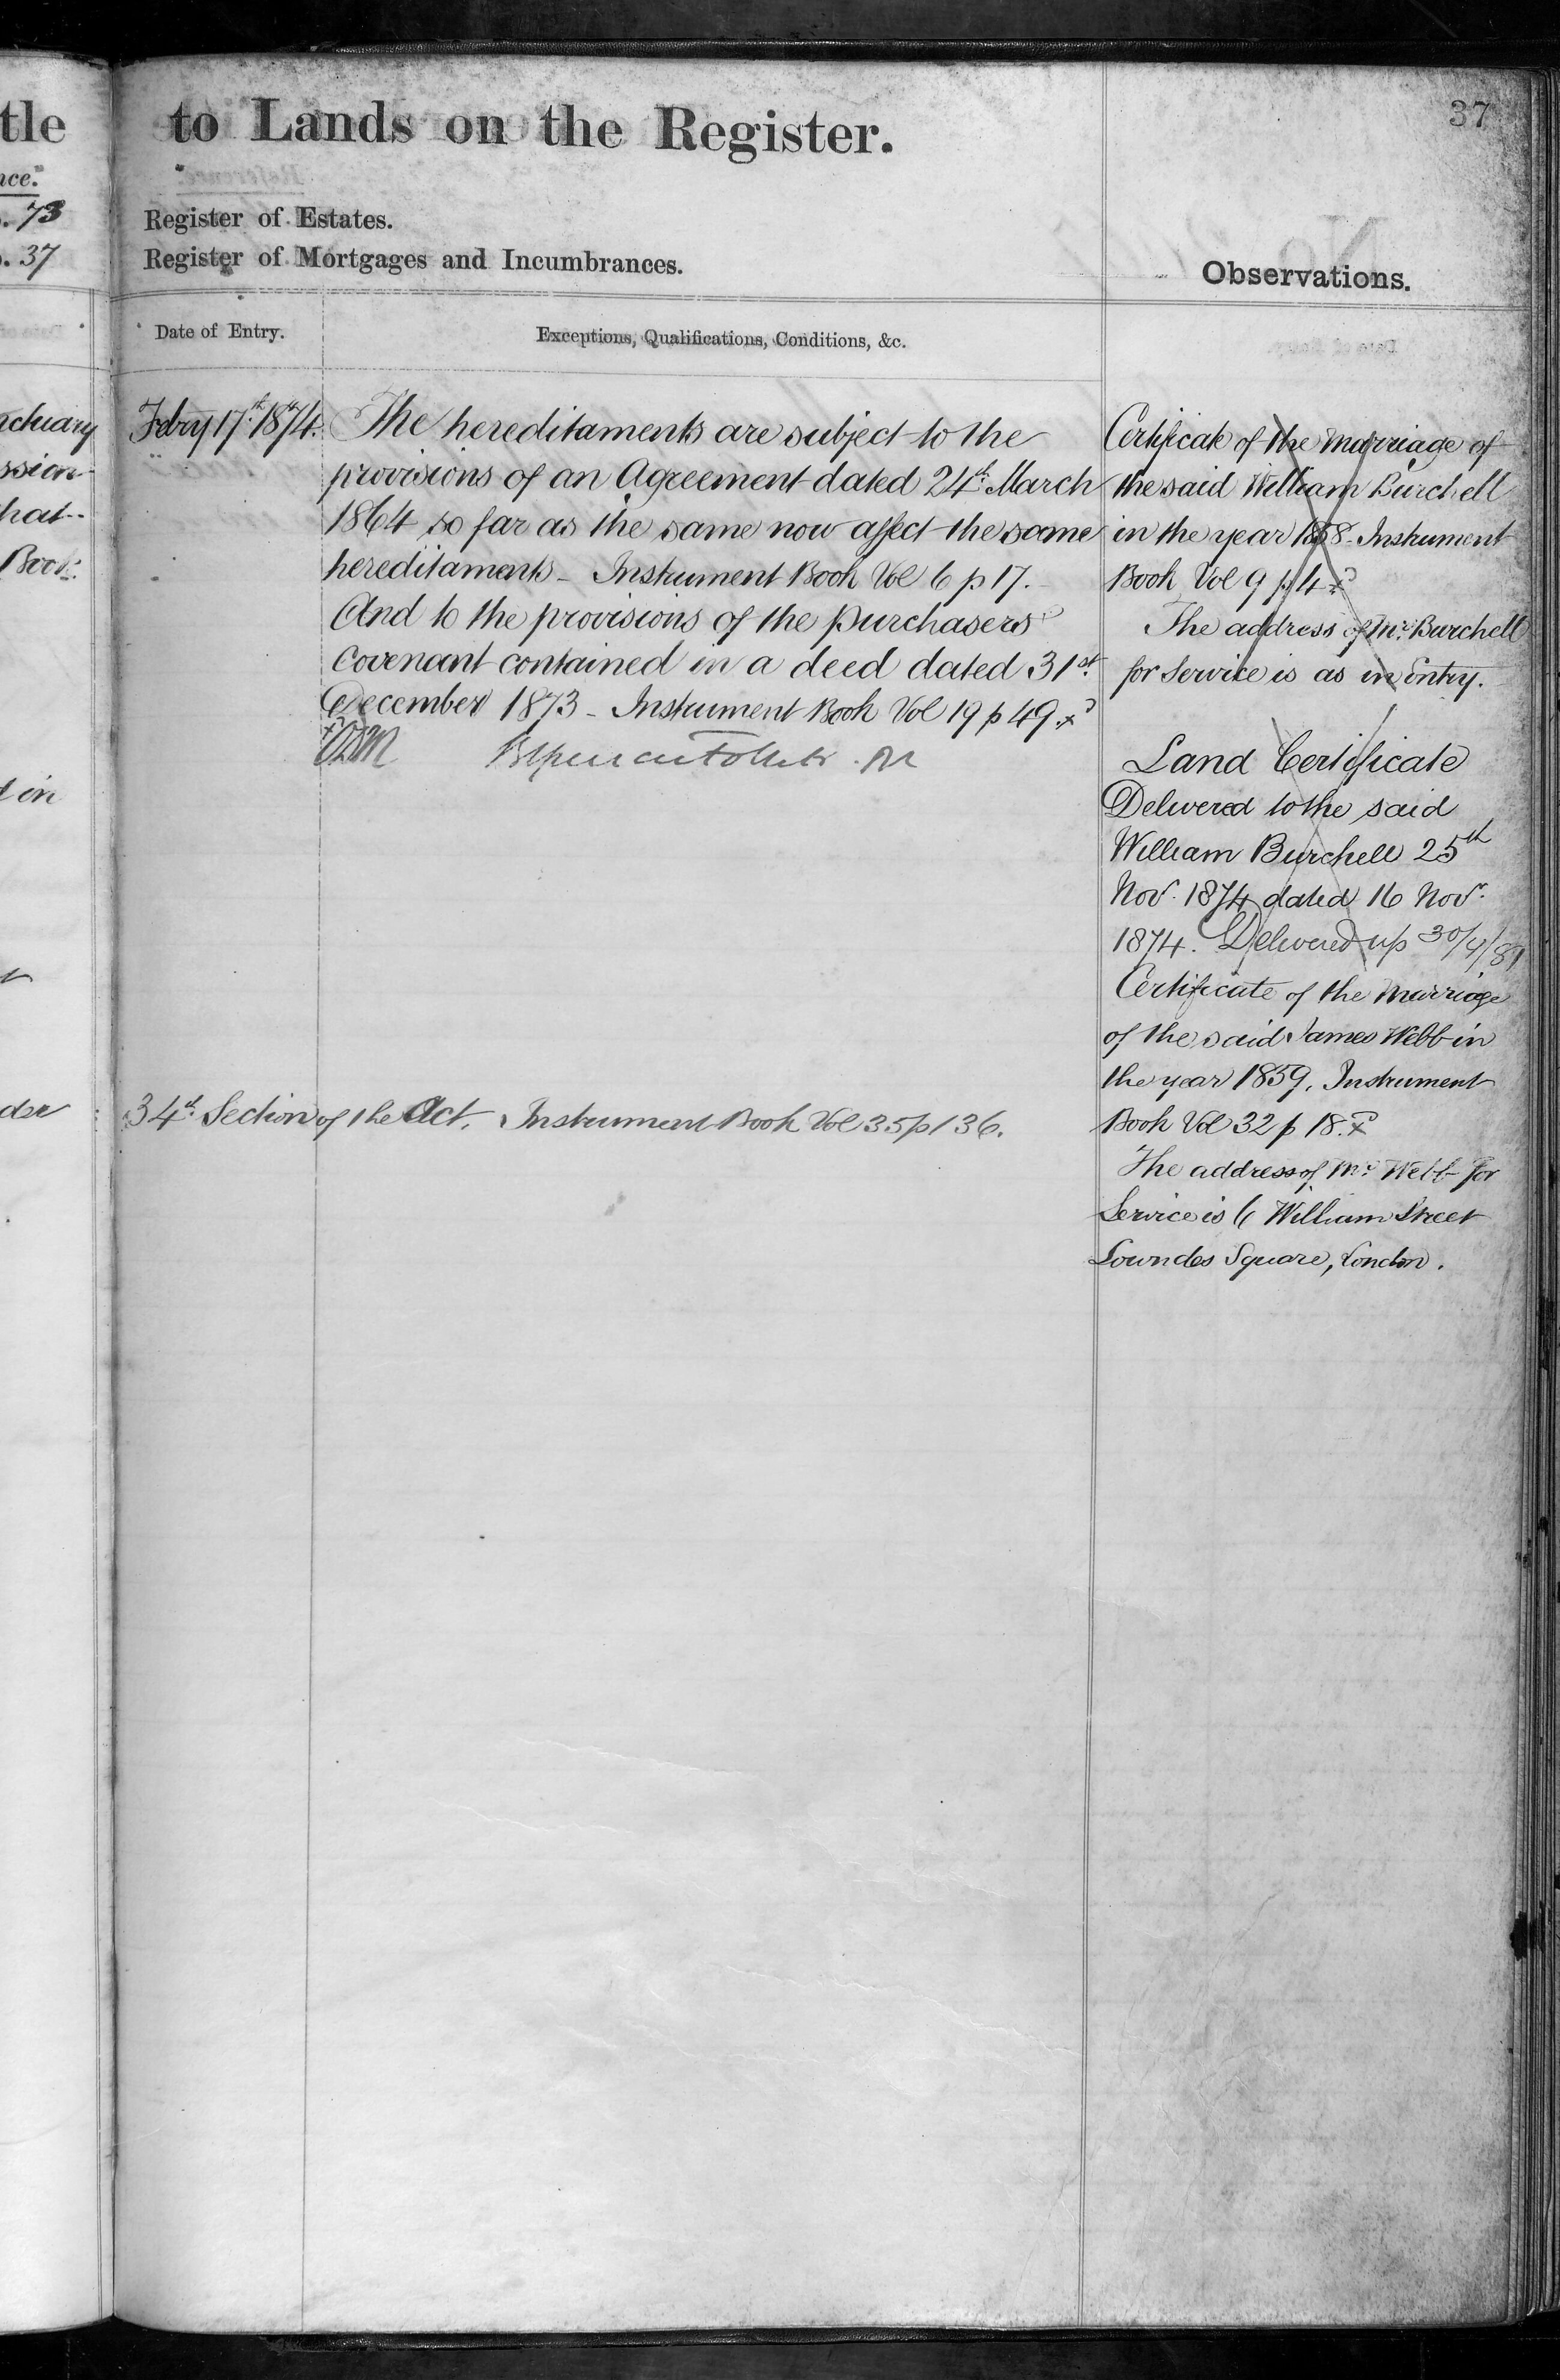 tle
nce.
. 73
. 37
actuary
ssion
hat
Book
in
der
to Lands on the Register.
37
Register of Estates.
Register of Mortgages and Incumbrances.
Observations.
Date of Entry.
Exceptions, Qualifications, Conditions, &c.
Febry 17th 1874.
The hereditaments are subject to the
provisions of an Agreement dated 24th March
1864 so far as the same now affect the same
hereditaments - Instrument Book Vol 6 p 17.
And to the provisions of the Purchasers
Covenant contained in a deed dated 31st
December 1873 - Instrument Book Vol 19 p 49.
34th Section of the Act. Instrument Book Vol 35 p 136.
Certificate of the marriage of
the said William Burchell
in the year 1858. Instrument
Book Vol 9 p 4
The address of Mr. Burchell
for Service is as in Entry.
Land Certificate
Delivered to the said
William Burchell 25th
Novr. 1874 dated 16 Novr.
1874. Delivered up 30/4/81
Certificate of the Marriage
of the said James Webb in
the year 1859. Instrument
Book Vol 32 p 18.
The address of Mr. Webb for
Service is 6 William Street
Lowndes Square, London.